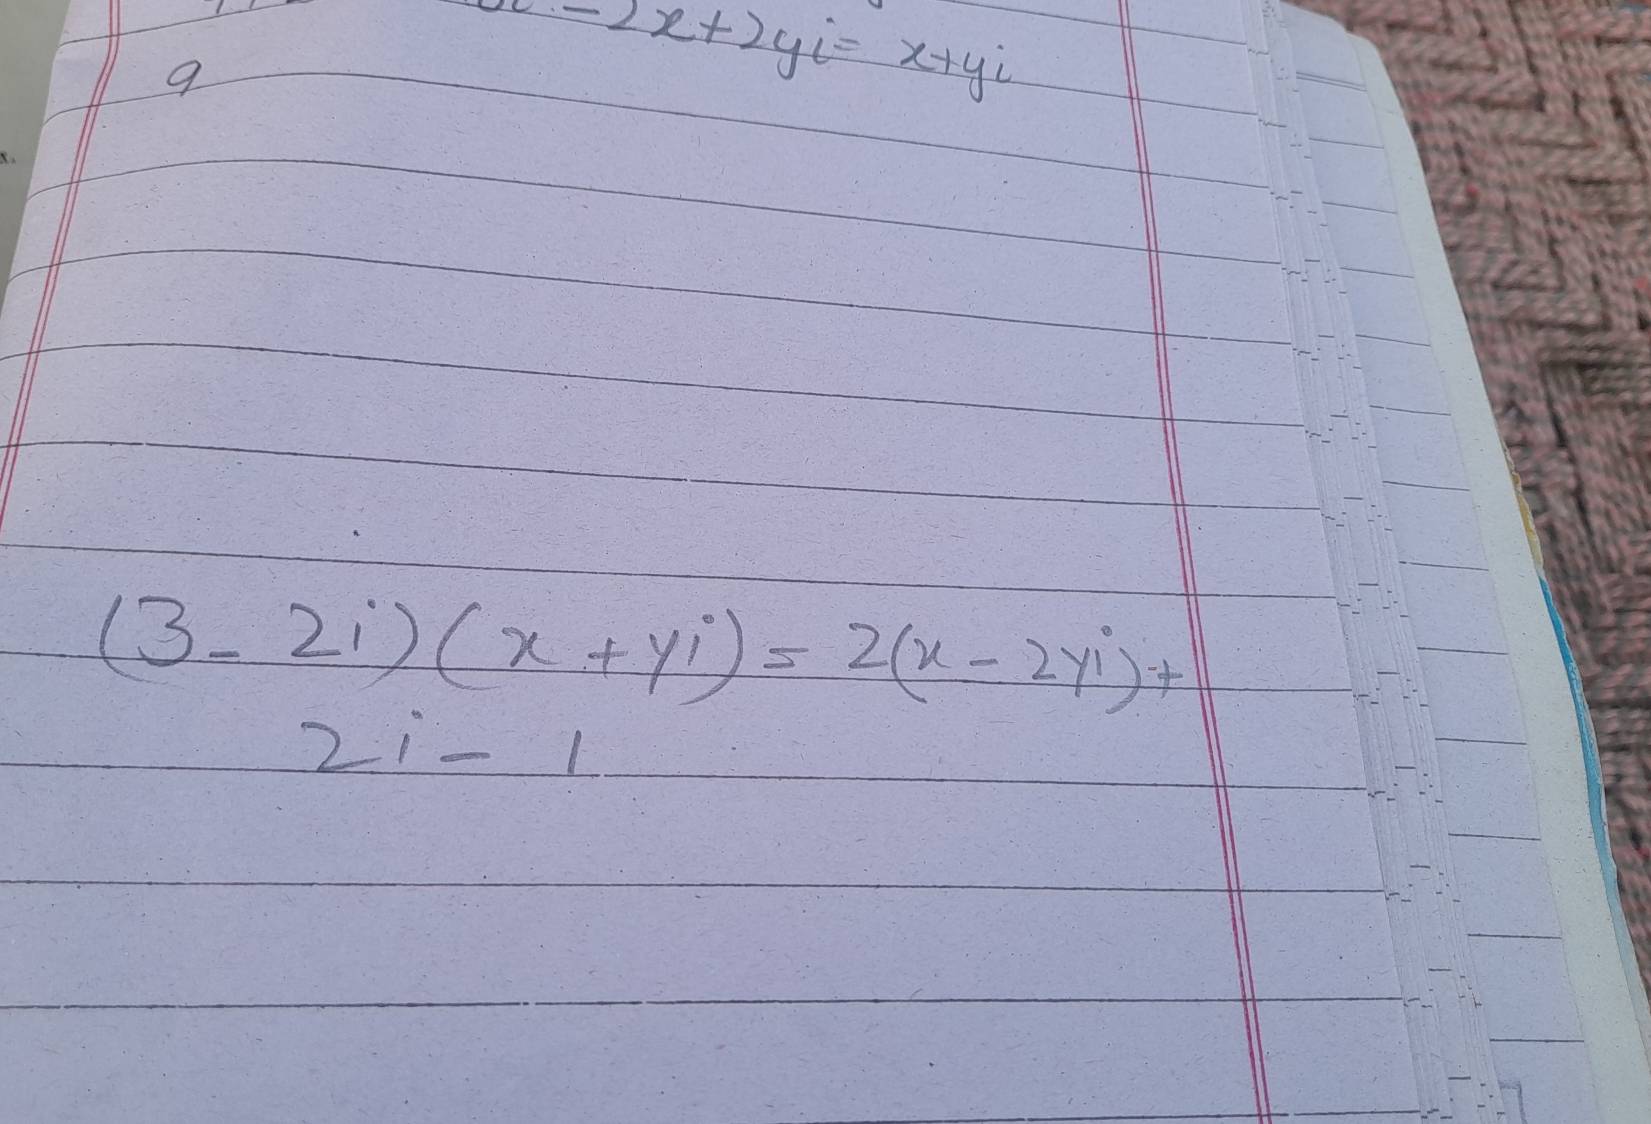 - 2x + 2yi = x + yi
9
(3 - 2i) (x + yi) = 2(x - 2yi) +
2i - 1